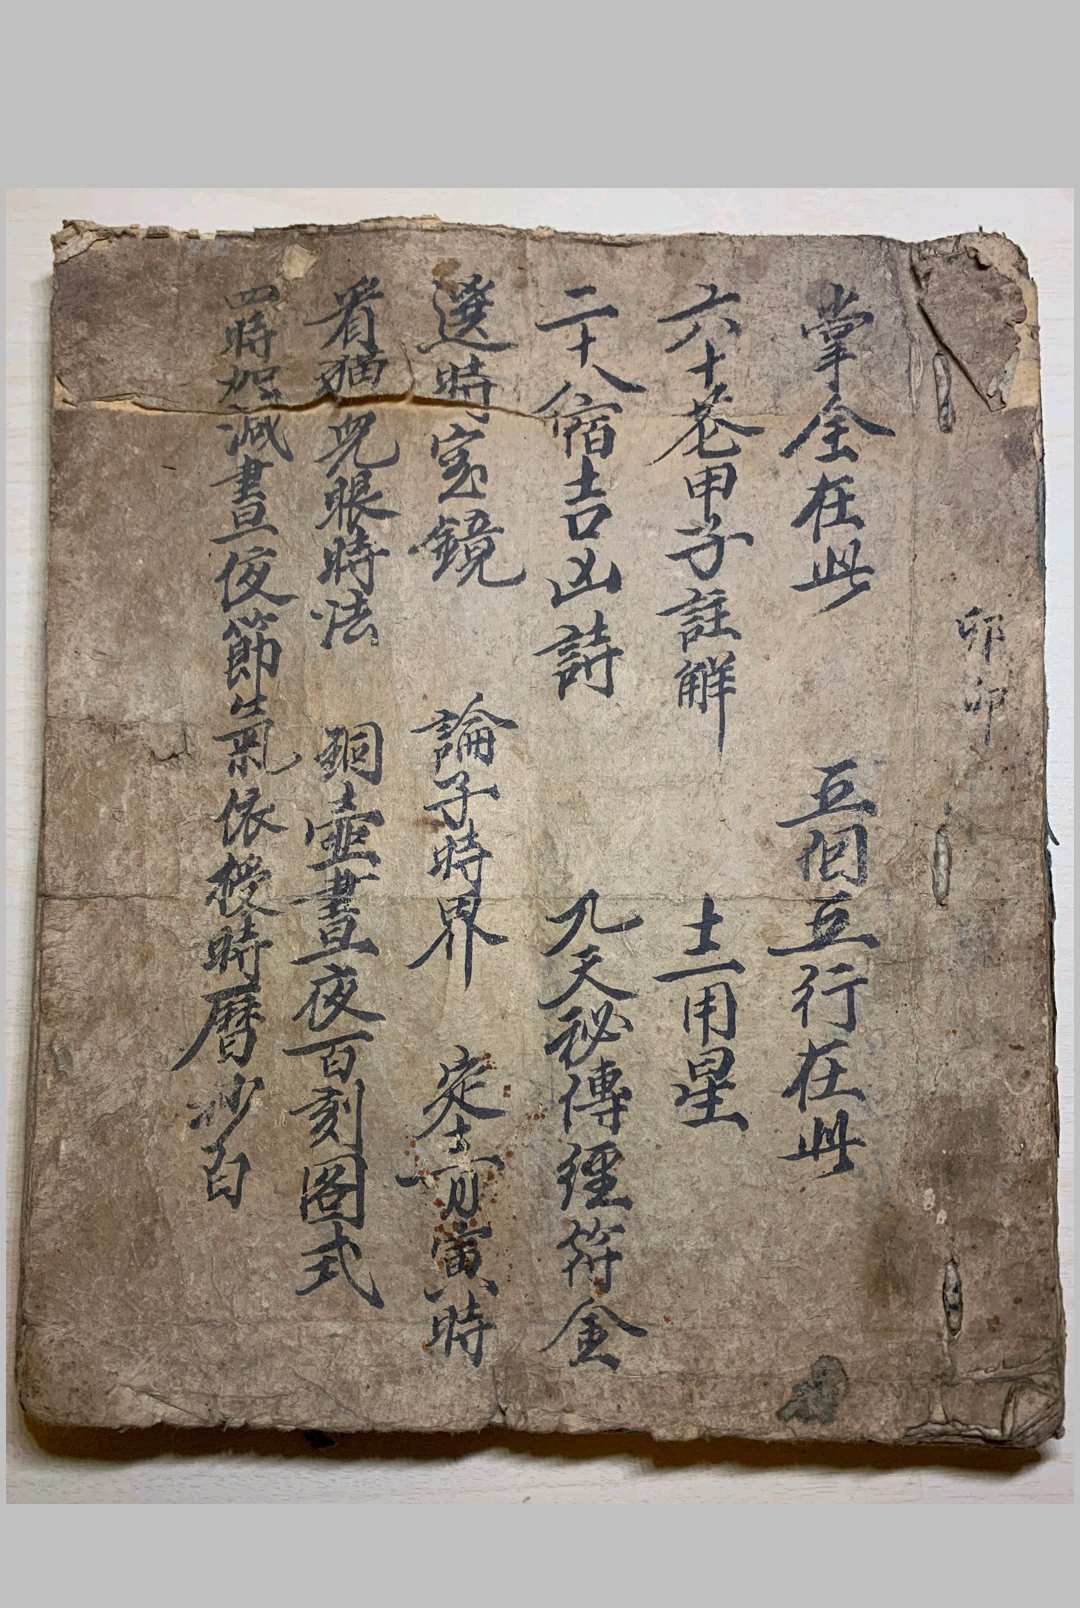 卯卯
掌全在此 五個五行在此
六十花甲子註解 十一用星
二十八宿吉凶詩 九天秘傳經符金
選時宝鏡 論子時界 定十二月寅時
看猫兒眼時法 銅壷晝夜百刻图式
四時加減晝夜節氣依授時曆抄白